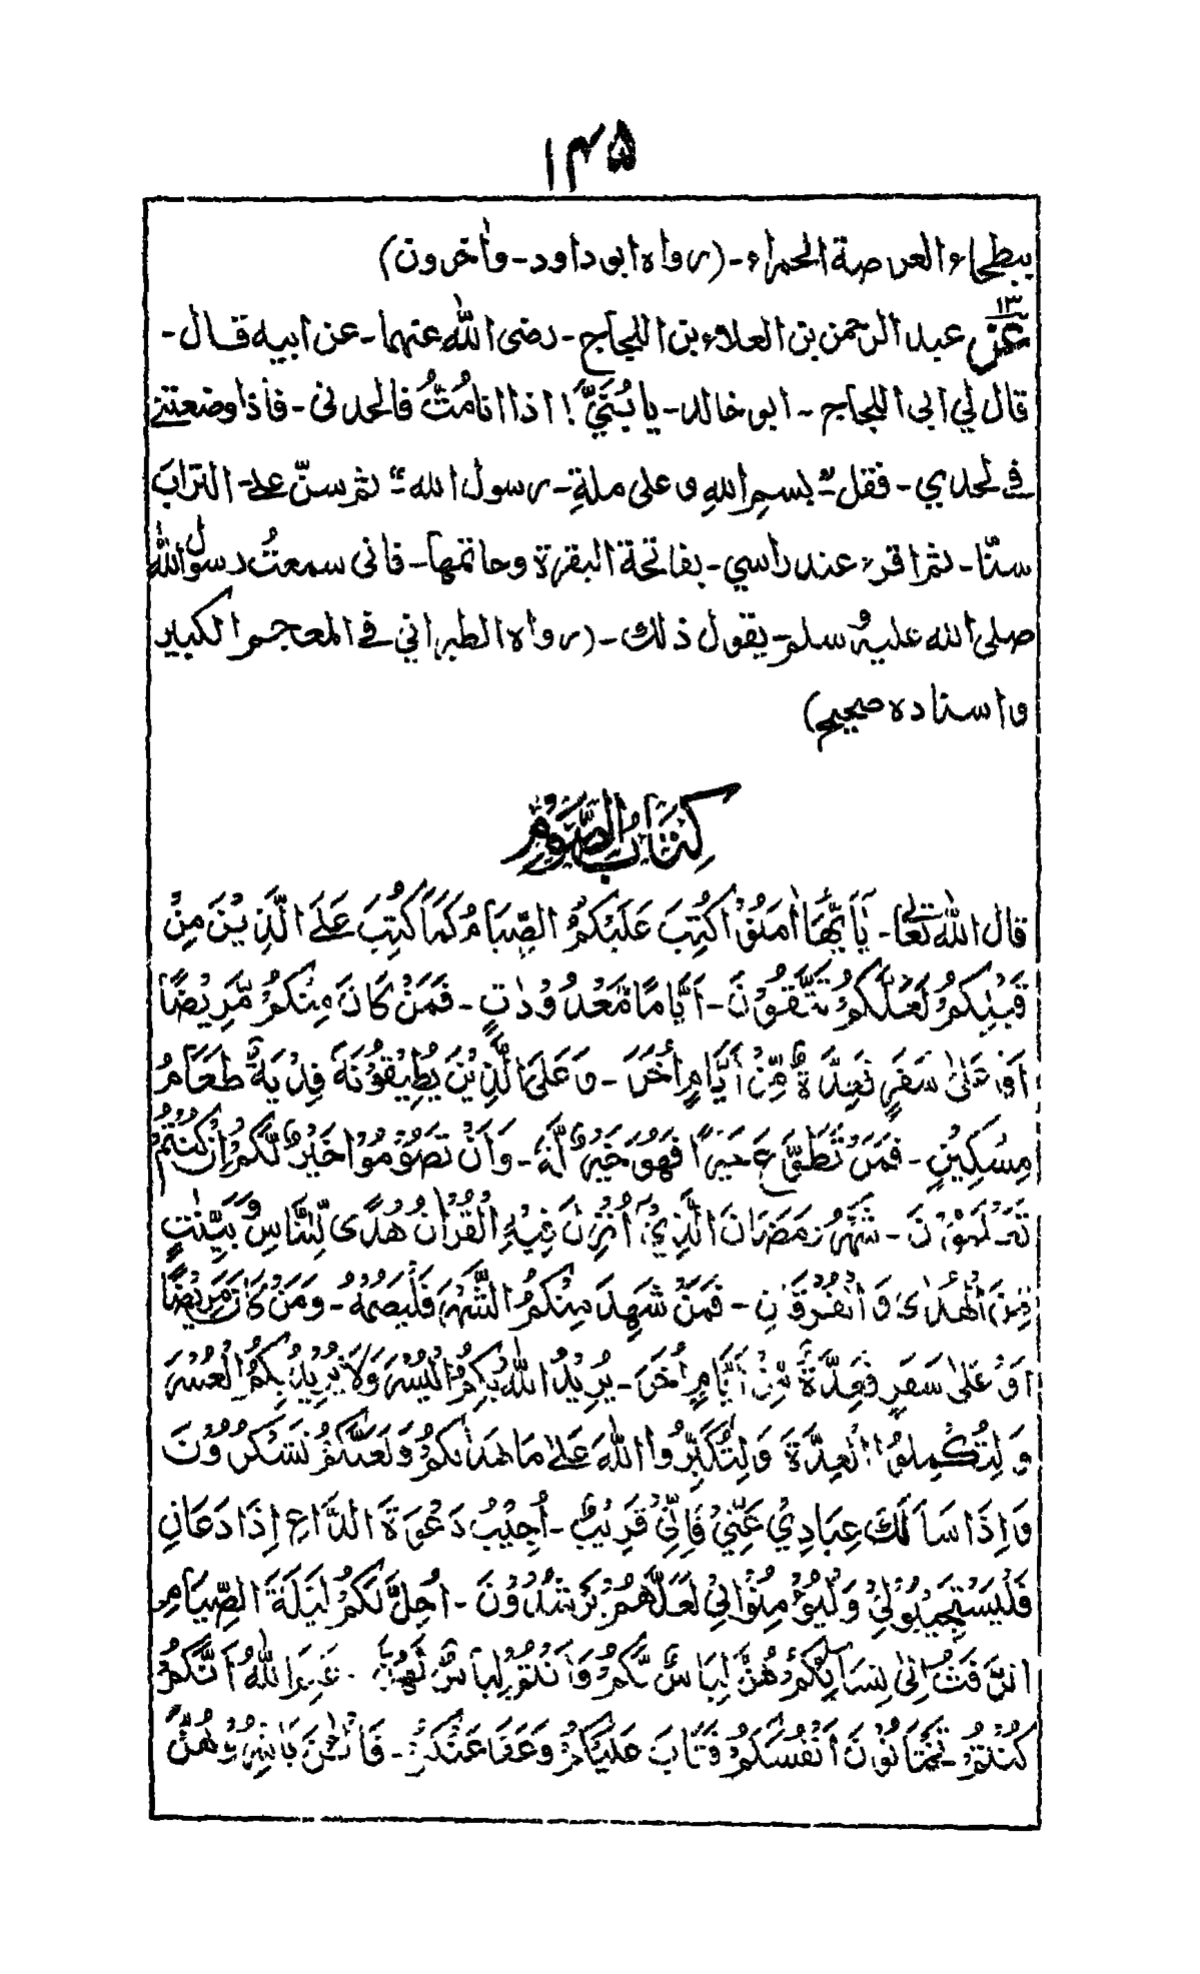 ۱۴۵
ببطحاء العرصة الحمراء - (رواه ابو داود - واٰخرون)
۱۳
عن عبد الرحمن بن العلاء بن اللجلاج - رضى اللّٰه عنهما - عن ابيه قال -
قال لي ابى اللجلاج - ابو خالد - يا بُنَيَّ! اذا انا مُتُّ فالحدنى - فاذا وضعتني
في لحدي - فقل "بسمِ اللهِ وعلى ملةِ - رسول الله" ثم سنّ على - الترابَ
سنّا - ثم اقرء عند راسي - بفاتحة البقرة وخاتمها - فانى سمعتُ رسول اللّٰه
صلى الله عليه وسلم - يقول ذلك - (رواه الطبراني في المعجم الكبير
واسناده صحيح)
كِتَابُ الصَّوْمِ
قال اللّٰه تعالٰى - يٰٓاَيُّهَا الَّذِيْنَ اٰمَنُوْا كُتِبَ عَلَيْكُمُ الصِّيَامُ كَمَا كُتِبَ عَلَى الَّذِيْنَ مِنْ
قَبْلِكُمْ لَعَلَّكُمْ تَتَّقُوْنَ - اَيَّامًا مَّعْدُوْدٰتٍ - فَمَنْ كَانَ مِنْكُمْ مَّرِيْضًا
اَوْ عَلٰى سَفَرٍ فَعِدَّةٌ مِّنْ اَيَّامٍ اُخَرَ - وَعَلَى الَّذِيْنَ يُطِيْقُوْنَهٗ فِدْيَةٌ طَعَامُ
مِسْكِيْنٍ - فَمَنْ تَطَوَّعَ خَيْرًا فَهُوَ خَيْرٌ لَّهٗ - وَاَنْ تَصُوْمُوْا خَيْرٌ لَّكُمْ اِنْ كُنْتُمْ
تَعْلَمُوْنَ - شَهْرُ رَمَضَانَ الَّذِيْٓ اُنْزِلَ فِيْهِ الْقُرْاٰنُ هُدًى لِّلنَّاسِ وَبَيِّنٰتٍ
مِّنَ الْهُدٰى وَالْفُرْقَانِ - فَمَنْ شَهِدَ مِنْكُمُ الشَّهْرَ فَلْيَصُمْهُ - وَمَنْ كَانَ مَرِيْضًا
اَوْ عَلٰى سَفَرٍ فَعِدَّةٌ مِّنْ اَيَّامٍ اُخَرَ - يُرِيْدُ اللّٰهُ بِكُمُ الْيُسْرَ وَلَا يُرِيْدُ بِكُمُ الْعُسْرَ
وَلِتُكْمِلُوا الْعِدَّةَ وَلِتُكَبِّرُوا اللّٰهَ عَلٰى مَا هَدٰىكُمْ وَلَعَلَّكُمْ تَشْكُرُوْنَ
وَاِذَا سَاَلَكَ عِبَادِيْ عَنِّيْ فَاِنِّيْ قَرِيْبٌ - اُجِيْبُ دَعْوَةَ الدَّاعِ اِذَا دَعَانِ
فَلْيَسْتَجِيْبُوْا لِيْ وَلْيُؤْمِنُوْا بِيْ لَعَلَّهُمْ يَرْشُدُوْنَ - اُحِلَّ لَكُمْ لَيْلَةَ الصِّيَامِ
الرَّفَثُ اِلٰى نِسَآئِكُمْ هُنَّ لِبَاسٌ لَّكُمْ وَاَنْتُمْ لِبَاسٌ لَّهُنَّ - عَلِمَ اللّٰهُ اَنَّكُمْ
كُنْتُمْ تَخْتَانُوْنَ اَنْفُسَكُمْ فَتَابَ عَلَيْكُمْ وَعَفَا عَنْكُمْ - فَالْـٰٔنَ بَاشِرُوْهُنَّ